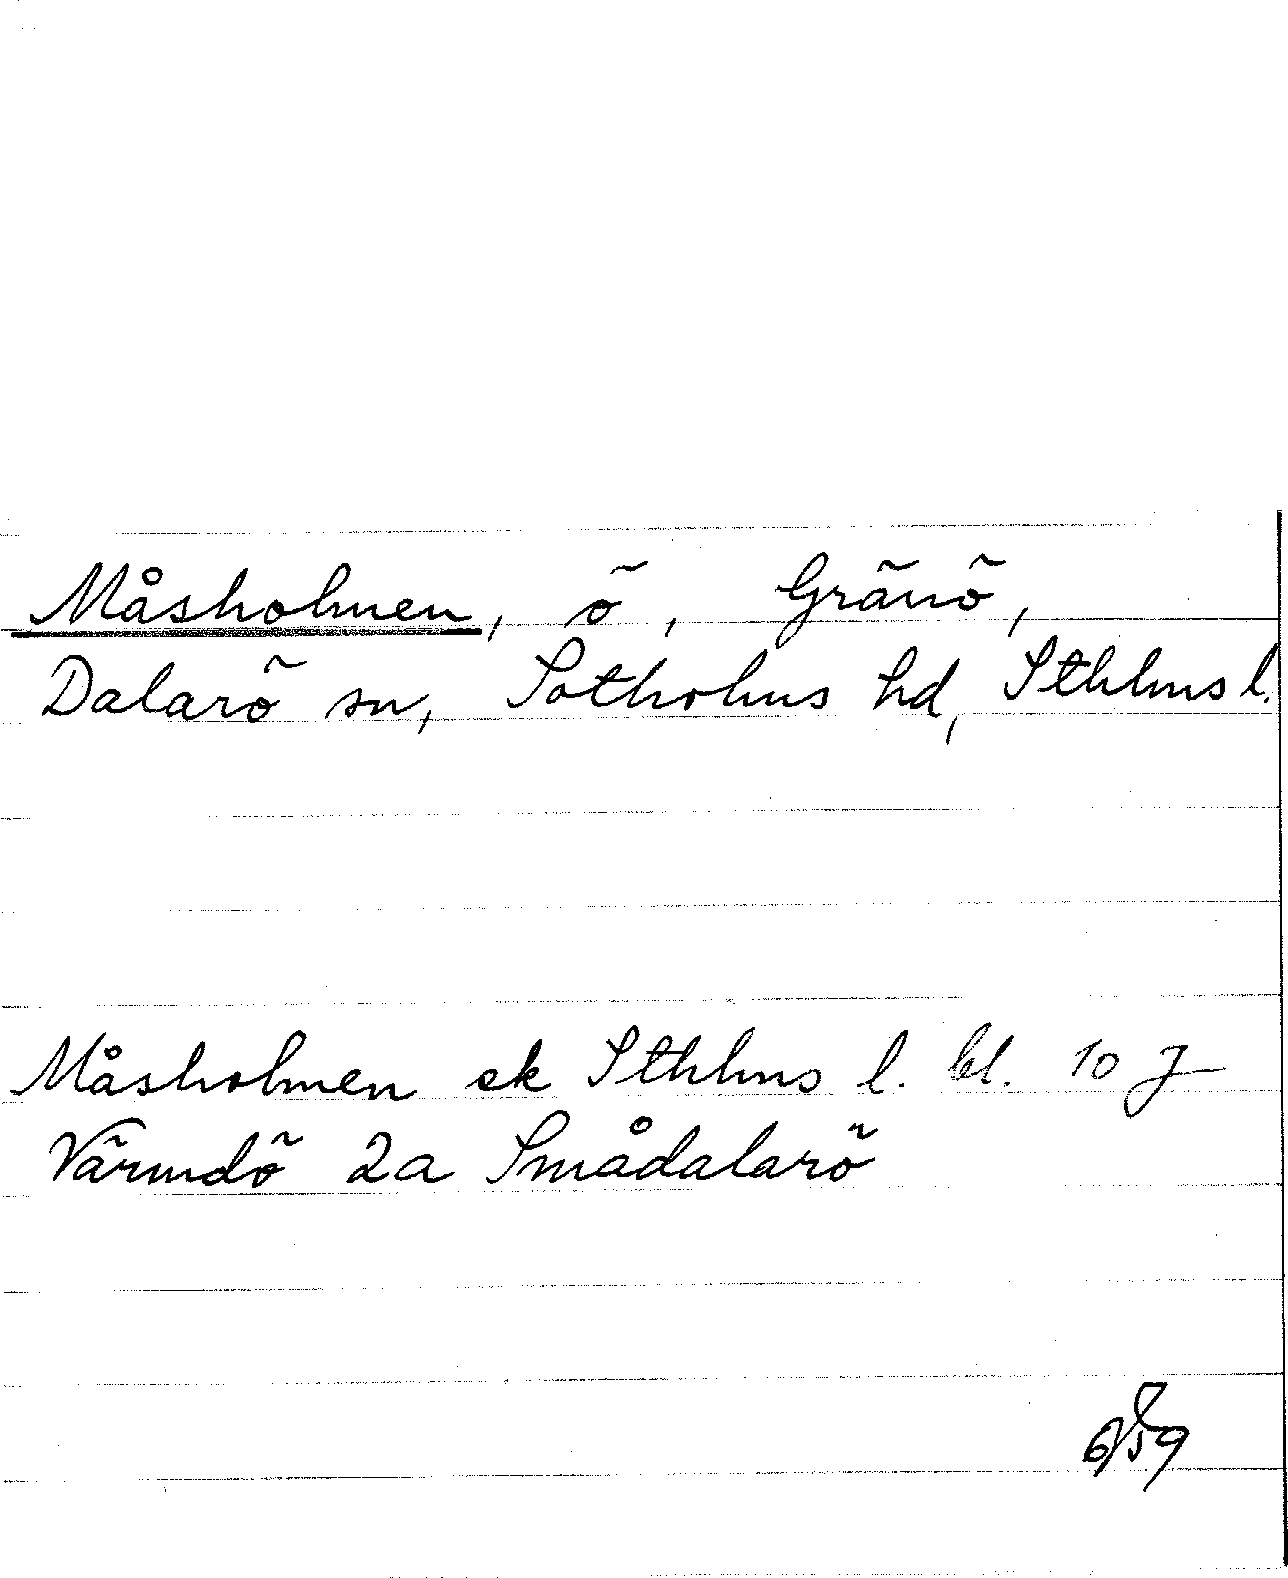 Måsholmen, ö, Gränö,
Dalarö sn, Sotholms hd, Sthlms l.
Måsholmen ek Sthlms l. bl. 10 J
Värmdö 2a Smådalarö